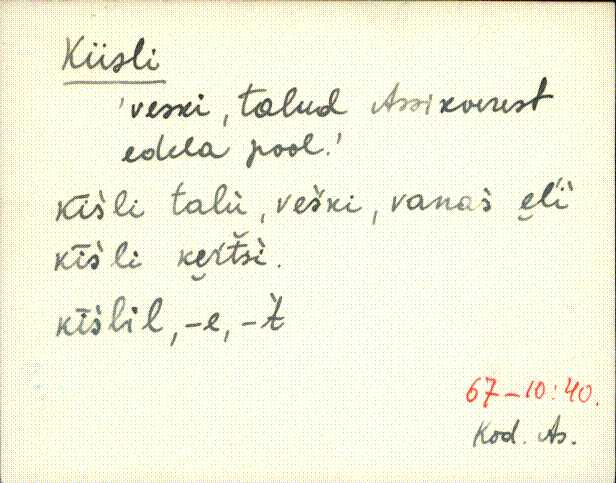 Kiisli
'veski, talud Assikverest
edela pool.'
kīs̀li talù, veški, vanaš ęl̀i
kīs̀li kę̄rt̆si.
kīs̀lil, -e, -t̀
67-10:40.
Kod. As.